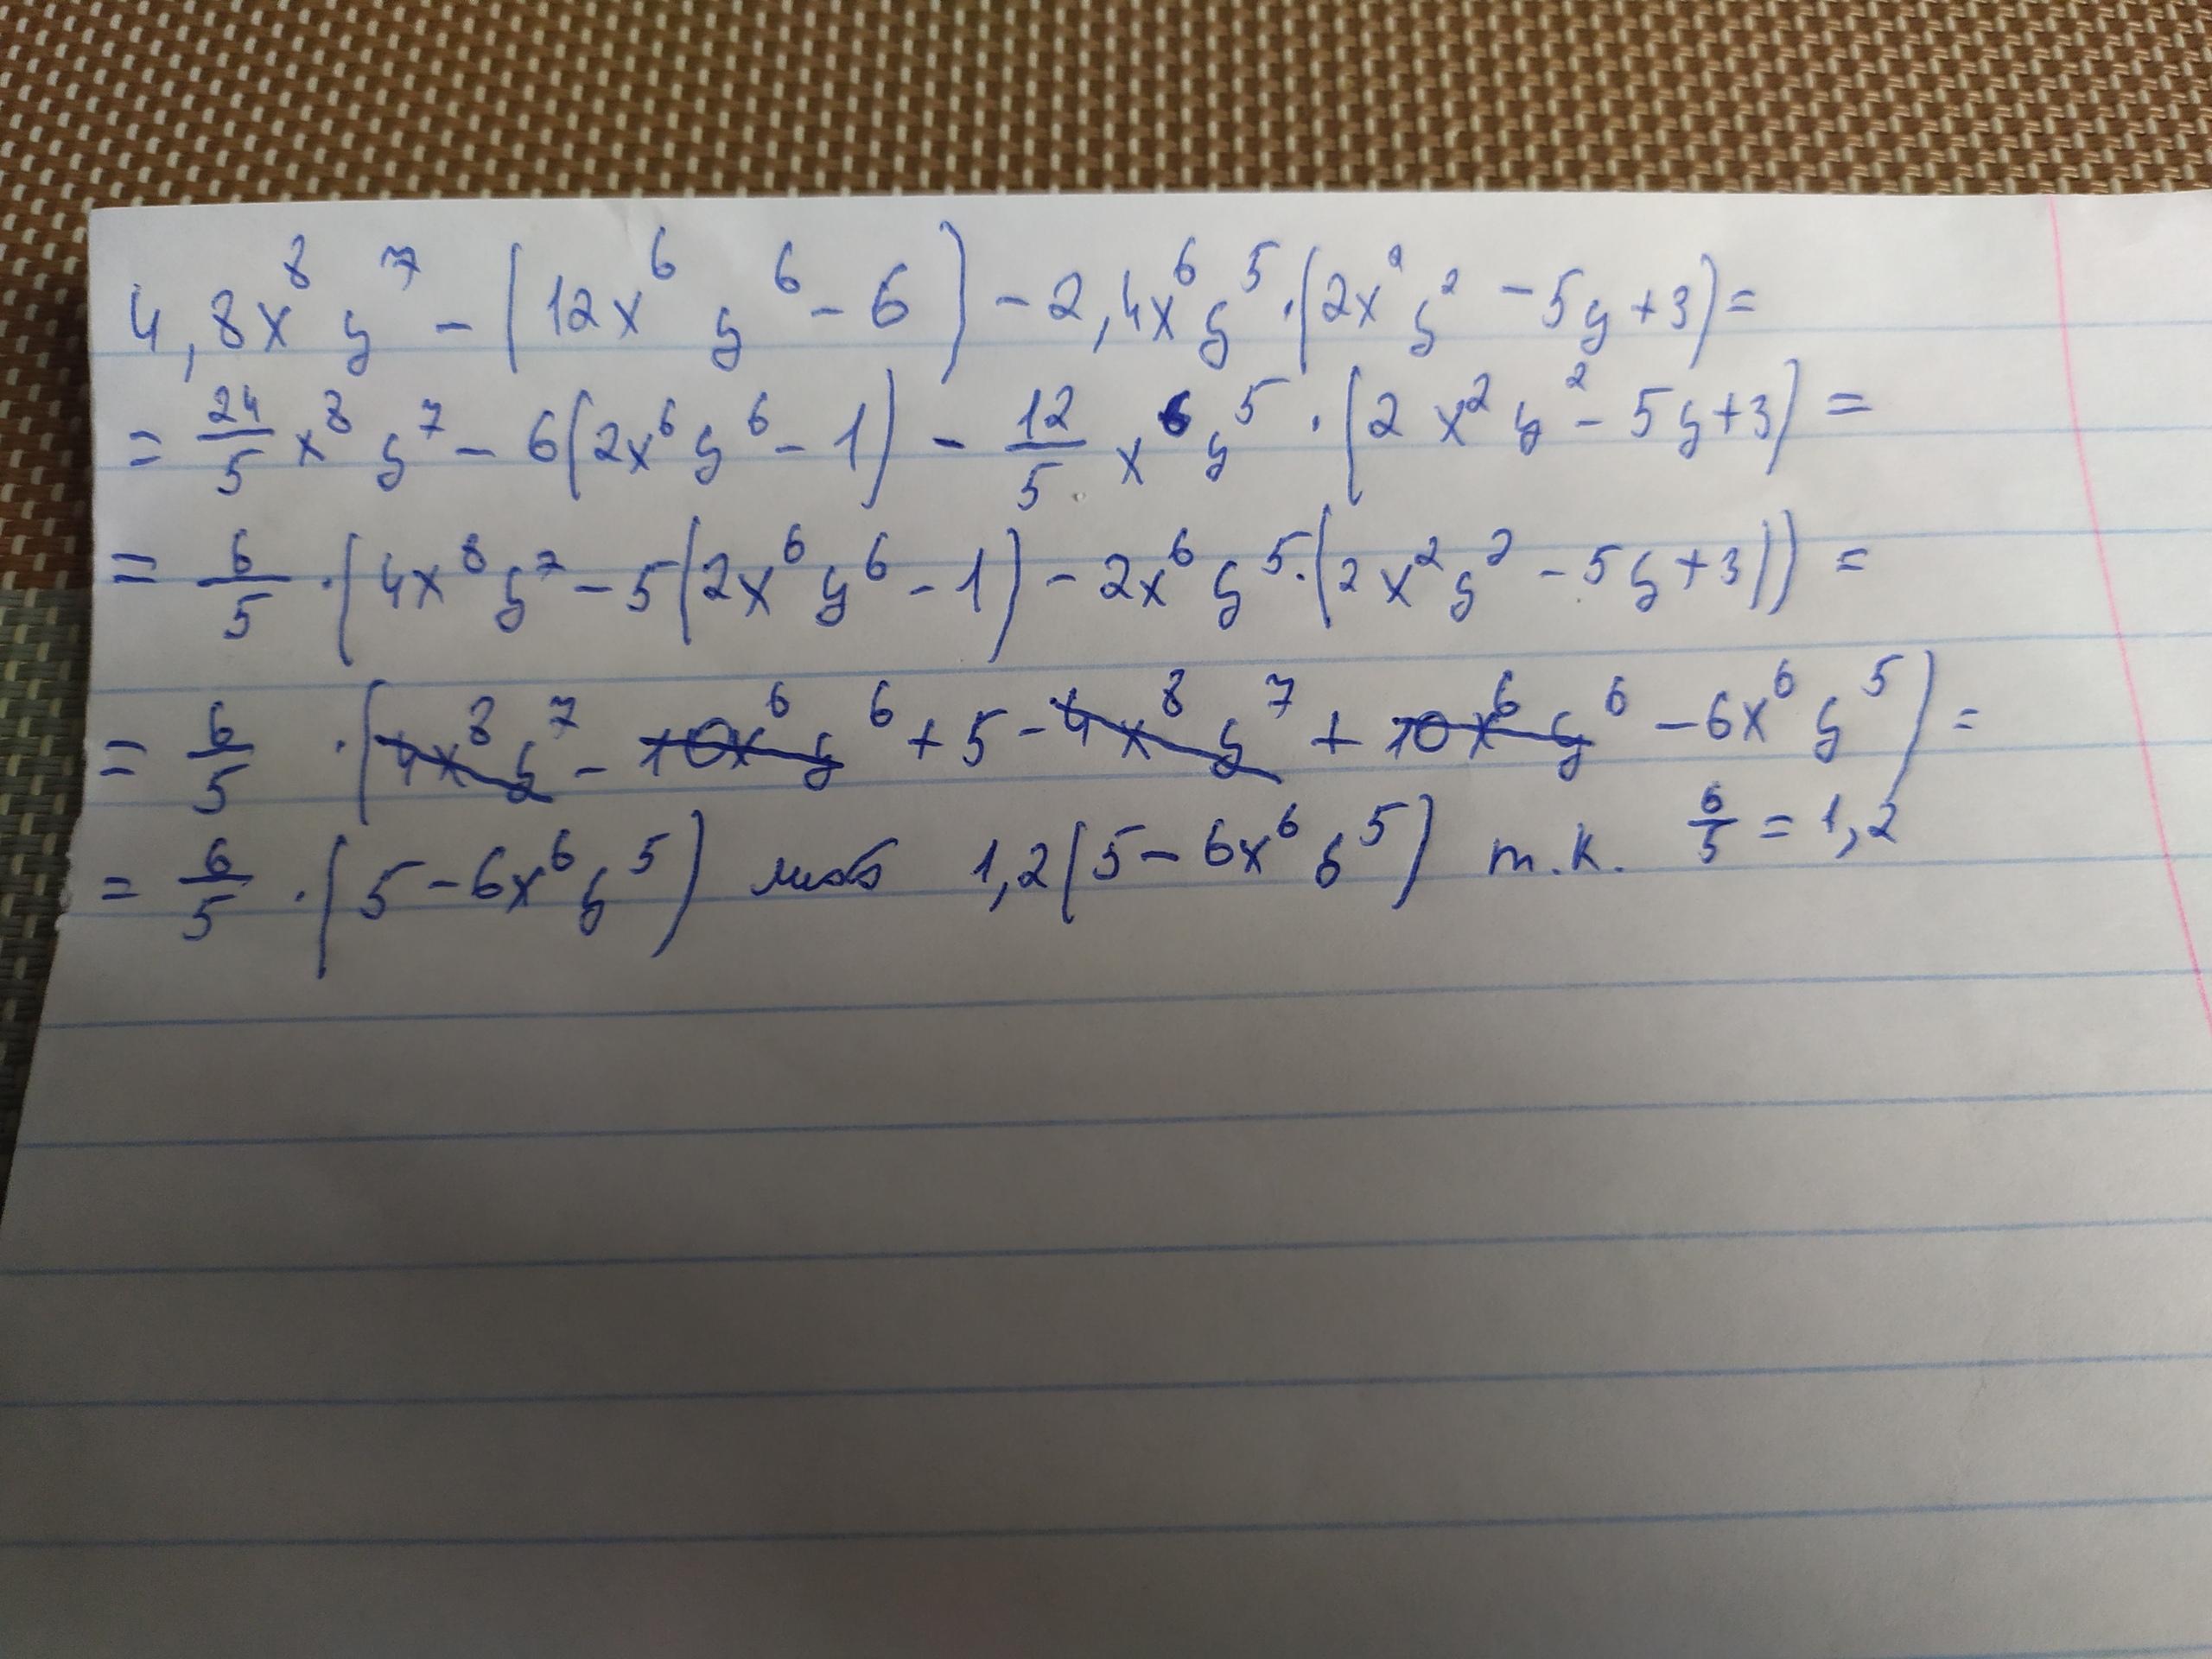 4,8x⁸y⁷ - (12x⁶y⁶ - 6) - 2,4x⁶y⁵·(2x²y² - 5y + 3) =
= 24/5 x⁸y⁷ - 6(2x⁶y⁶ - 1) - 12/5 x⁶y⁵·(2x²y² - 5y + 3) =
= 6/5·(4x⁸y⁷ - 5(2x⁶y⁶ - 1) - 2x⁶y⁵·(2x²y² - 5y + 3)) =
= 6/5·(4x⁸y⁷ - 10x⁶y⁶ + 5 - 4x⁸y⁷ + 10x⁶y⁶ - 6x⁶y⁵) =
= 6/5·(5 - 6x⁶y⁵) либо 1,2(5 - 6x⁶y⁵) т.к. 6/5 = 1,2